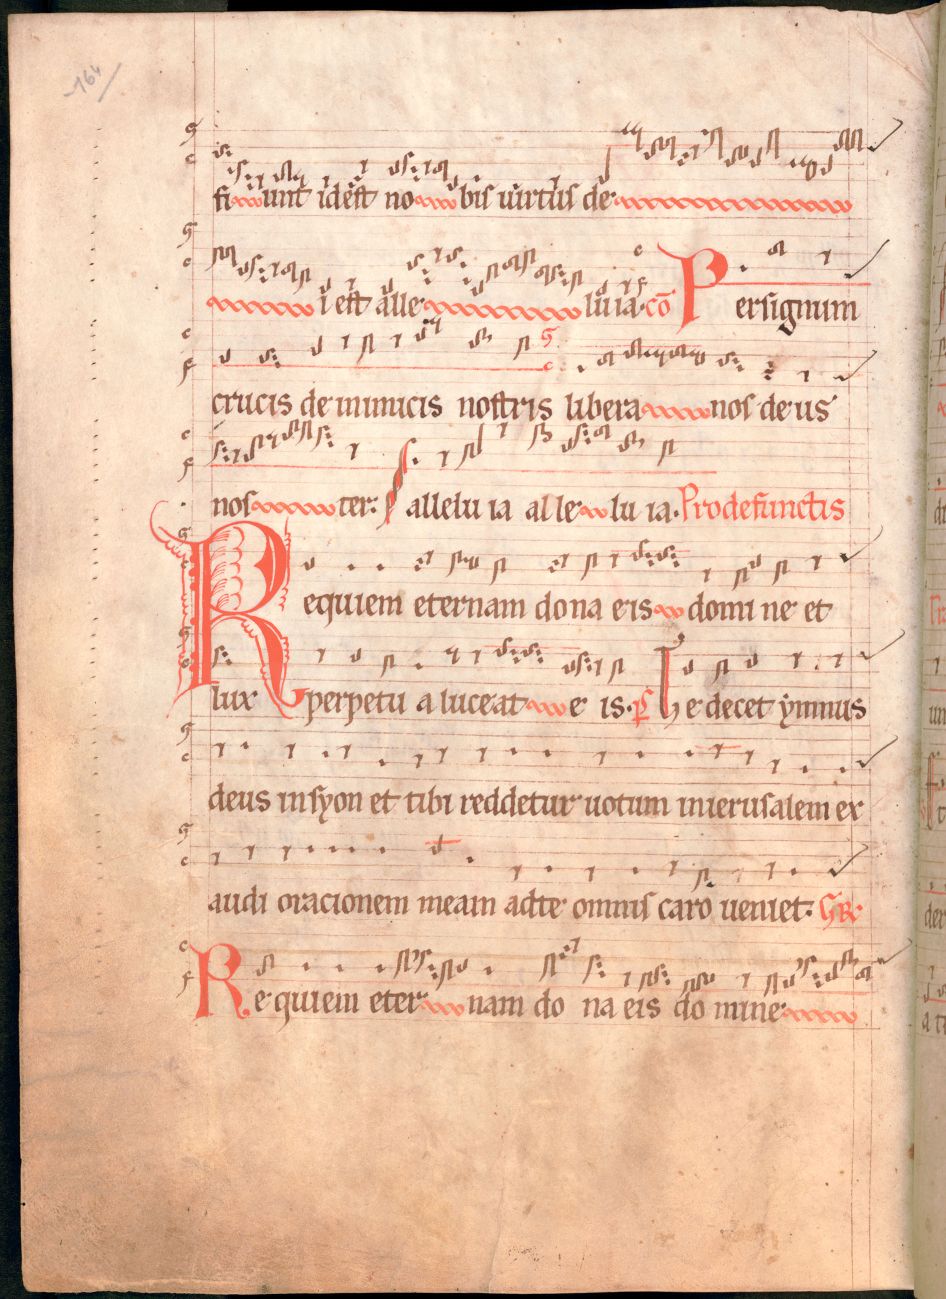 164
fiunt idest nobis uirtus de
i est alle luia. co Persignum
crucis de inimicis nostris libera nos deus
noster. allelu ia al le lu ia. Prodefunctis
Requiem eternam dona eis domi ne et
lux perpetu a luceat e is. ps Te decet ymnus
deus insyon et tibi reddetur uotum inierusalem ex
audi oracionem meam adte omnis caro ueniet. GR
Re quiem eter nam do na eis do mine